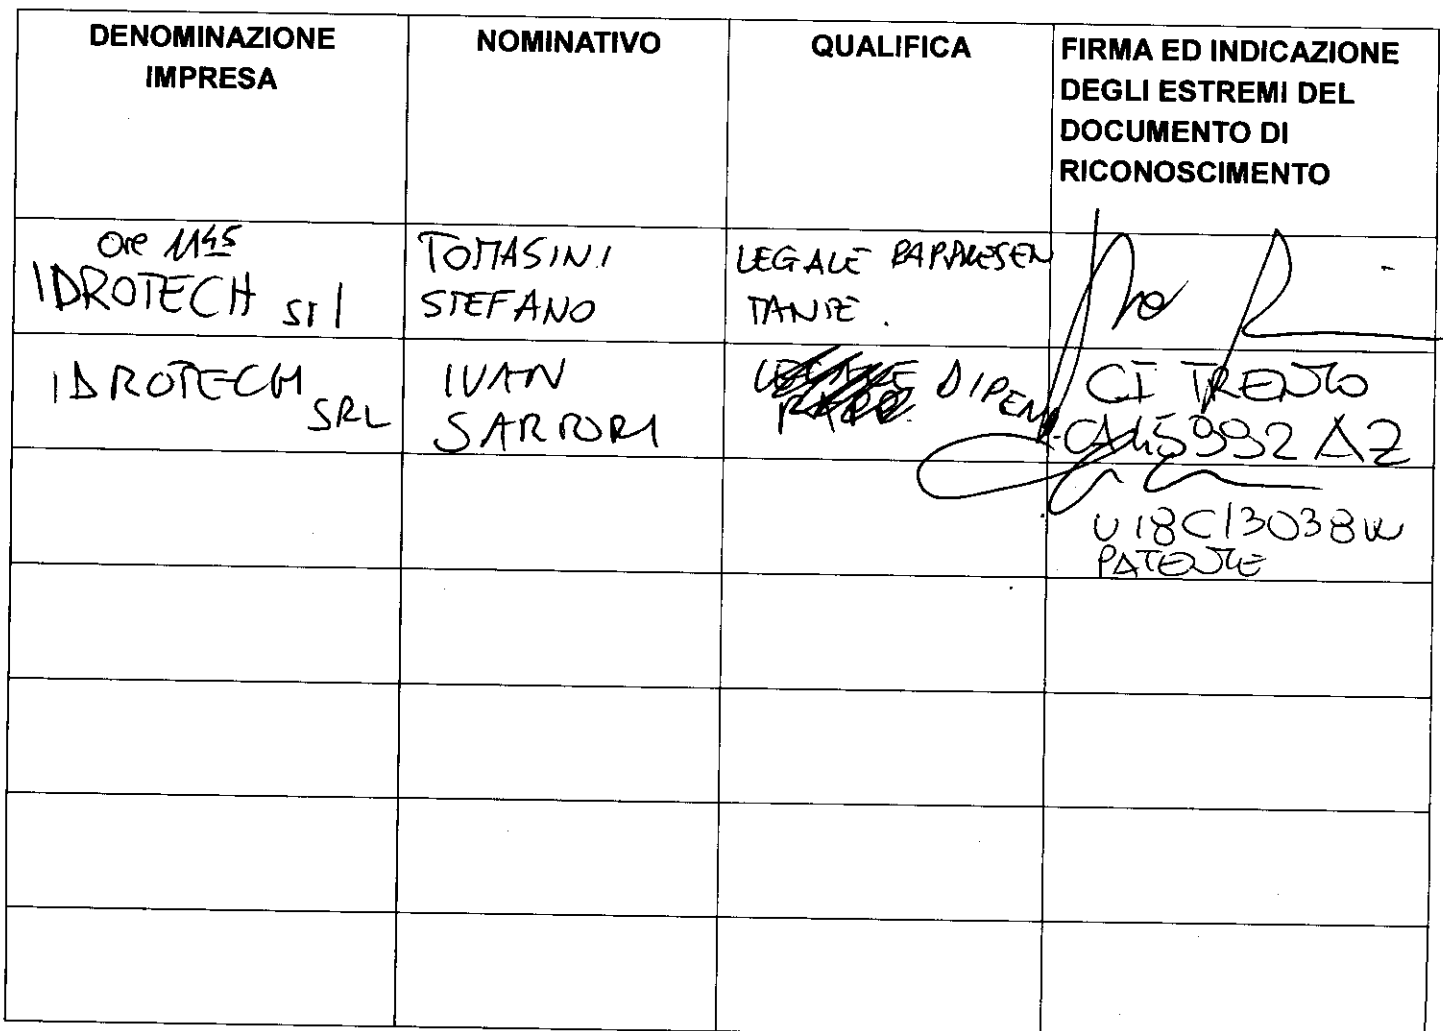 DENOMINAZIONE
IMPRESA
NOMINATIVO
QUALIFICA
FIRMA ED INDICAZIONE
DEGLI ESTREMI DEL
DOCUMENTO DI
RICONOSCIMENTO
Ore 11 45
IDROTECH srl
TOMASINI
STEFANO
LEGALE RAPPRESEN
TANTE.
IDROTECH
SRL
IVAN
SARTORI
DIPEND.
CI TRENTO
CA45992AZ
U18C13038W
PATENTE